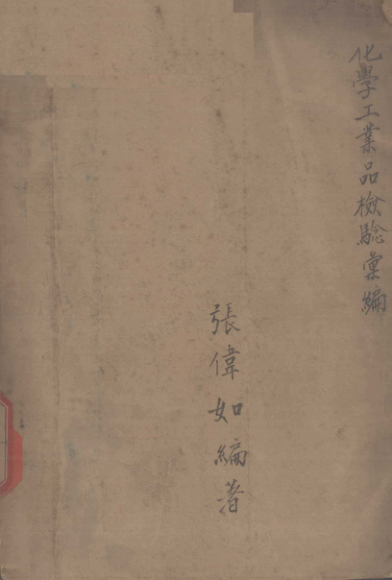 化學工業品檢驗彙編
張偉如編著